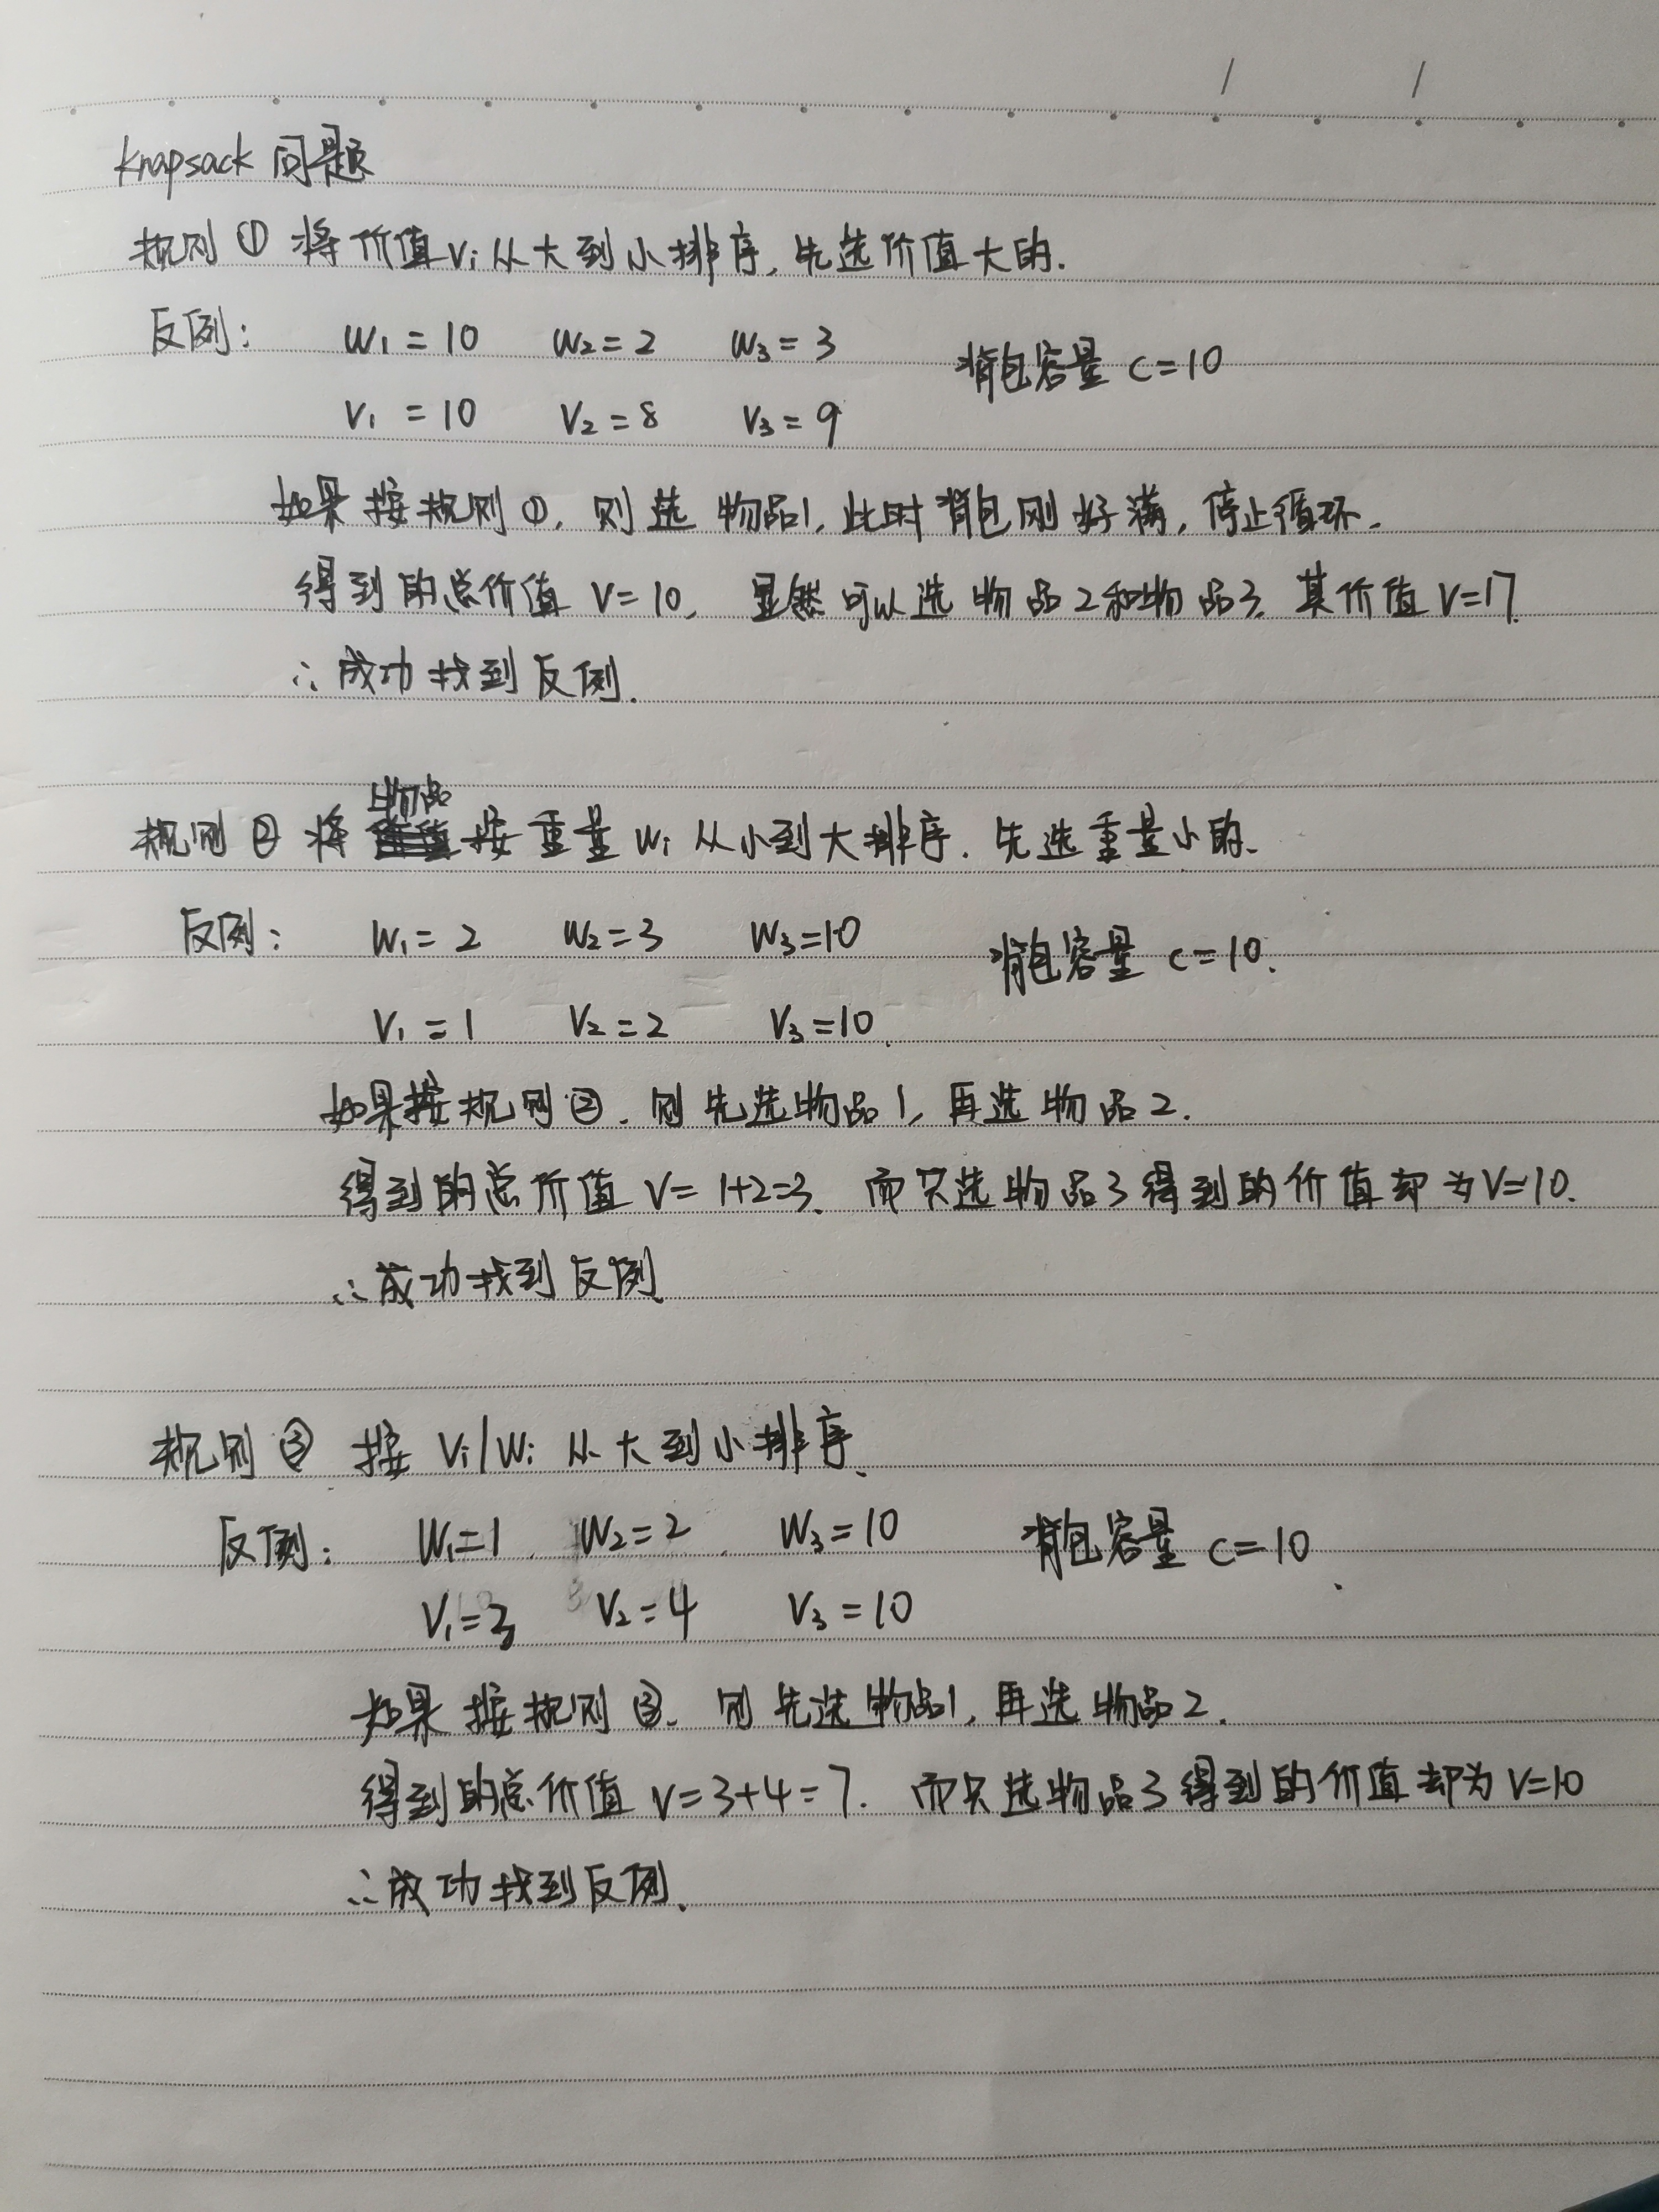 knapsack 问题
规则 ① 将价值 Vi 从大到小排序, 先选价值大的.
反例: W1 = 10 W2 = 2 W3 = 3 背包容量 C=10
V1 = 10 V2 = 8 V3 = 9
如果按规则①, 则选 物品1, 此时背包刚好满, 停止循环.
得到的总价值 V=10, 显然可以选物品2和物品3, 其价值V=17.
∴成功找到反例.
规则 ② 将物品按重量 Wi 从小到大排序. 先选重量小的.
反例: W1 = 2 W2 = 3 W3=10 背包容量 C=10.
V1 = 1 V2 = 2 V3 = 10.
如果按规则②, 则先选物品1, 再选物品2.
得到的总价值 V= 1+2=3. 而只选物品3得到的价值却为V=10.
∴成功找到反例.
规则 ③ 按 Vi/Wi 从大到小排序.
反例: W1=1. W2=2. W3=10 背包容量 C=10.
V1=3 V2=4 V3=10
如果按规则③, 则先选物品1, 再选物品2.
得到的总价值 V=3+4=7. 而只选物品3得到的价值却为V=10
∴成功找到反例.